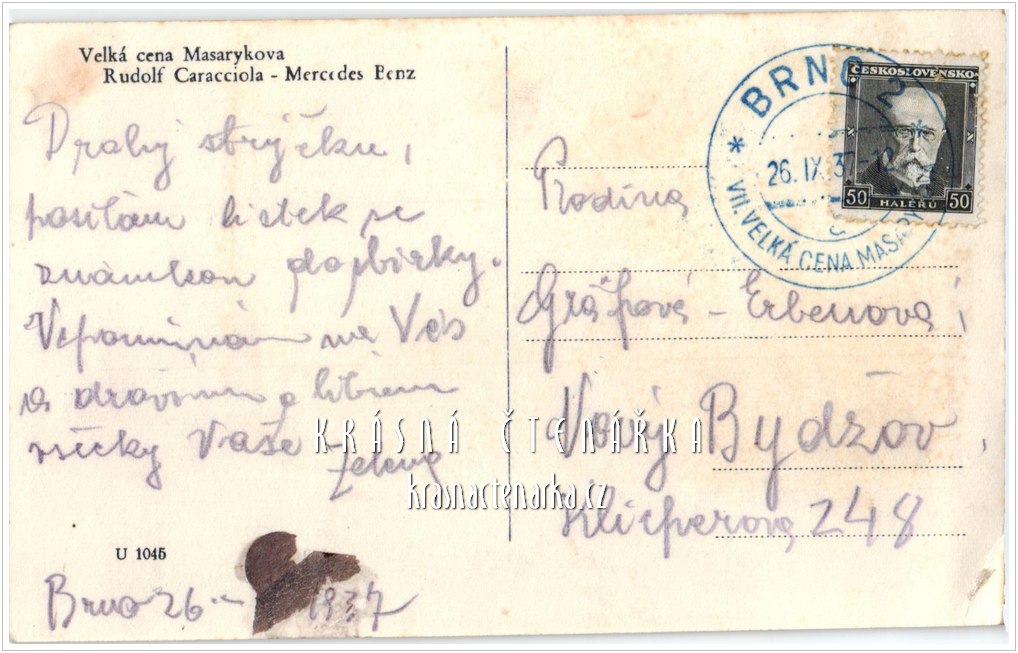 Velká cena Masarykova
Rudolf Caracciola - Mercedes Benz
Drahý strýčku,
posílám lístek se
známkou do sbírky.
Vzpomínám na Vás
a zdravím a líbám
všecky Vaše
Brno 26. 1937
U 1045
BRNO 2
26. IX. 37-12
VII. VELKÁ CENA MASARY
ČESKOSLOVENSKO
50 HALÉŘŮ 50
Rodina
Gräfová - Erbenová,
Nový Bydžov,
Klicperova 248
KRÁSNÁ ČTENÁŘKA
krasnactenarka.cz